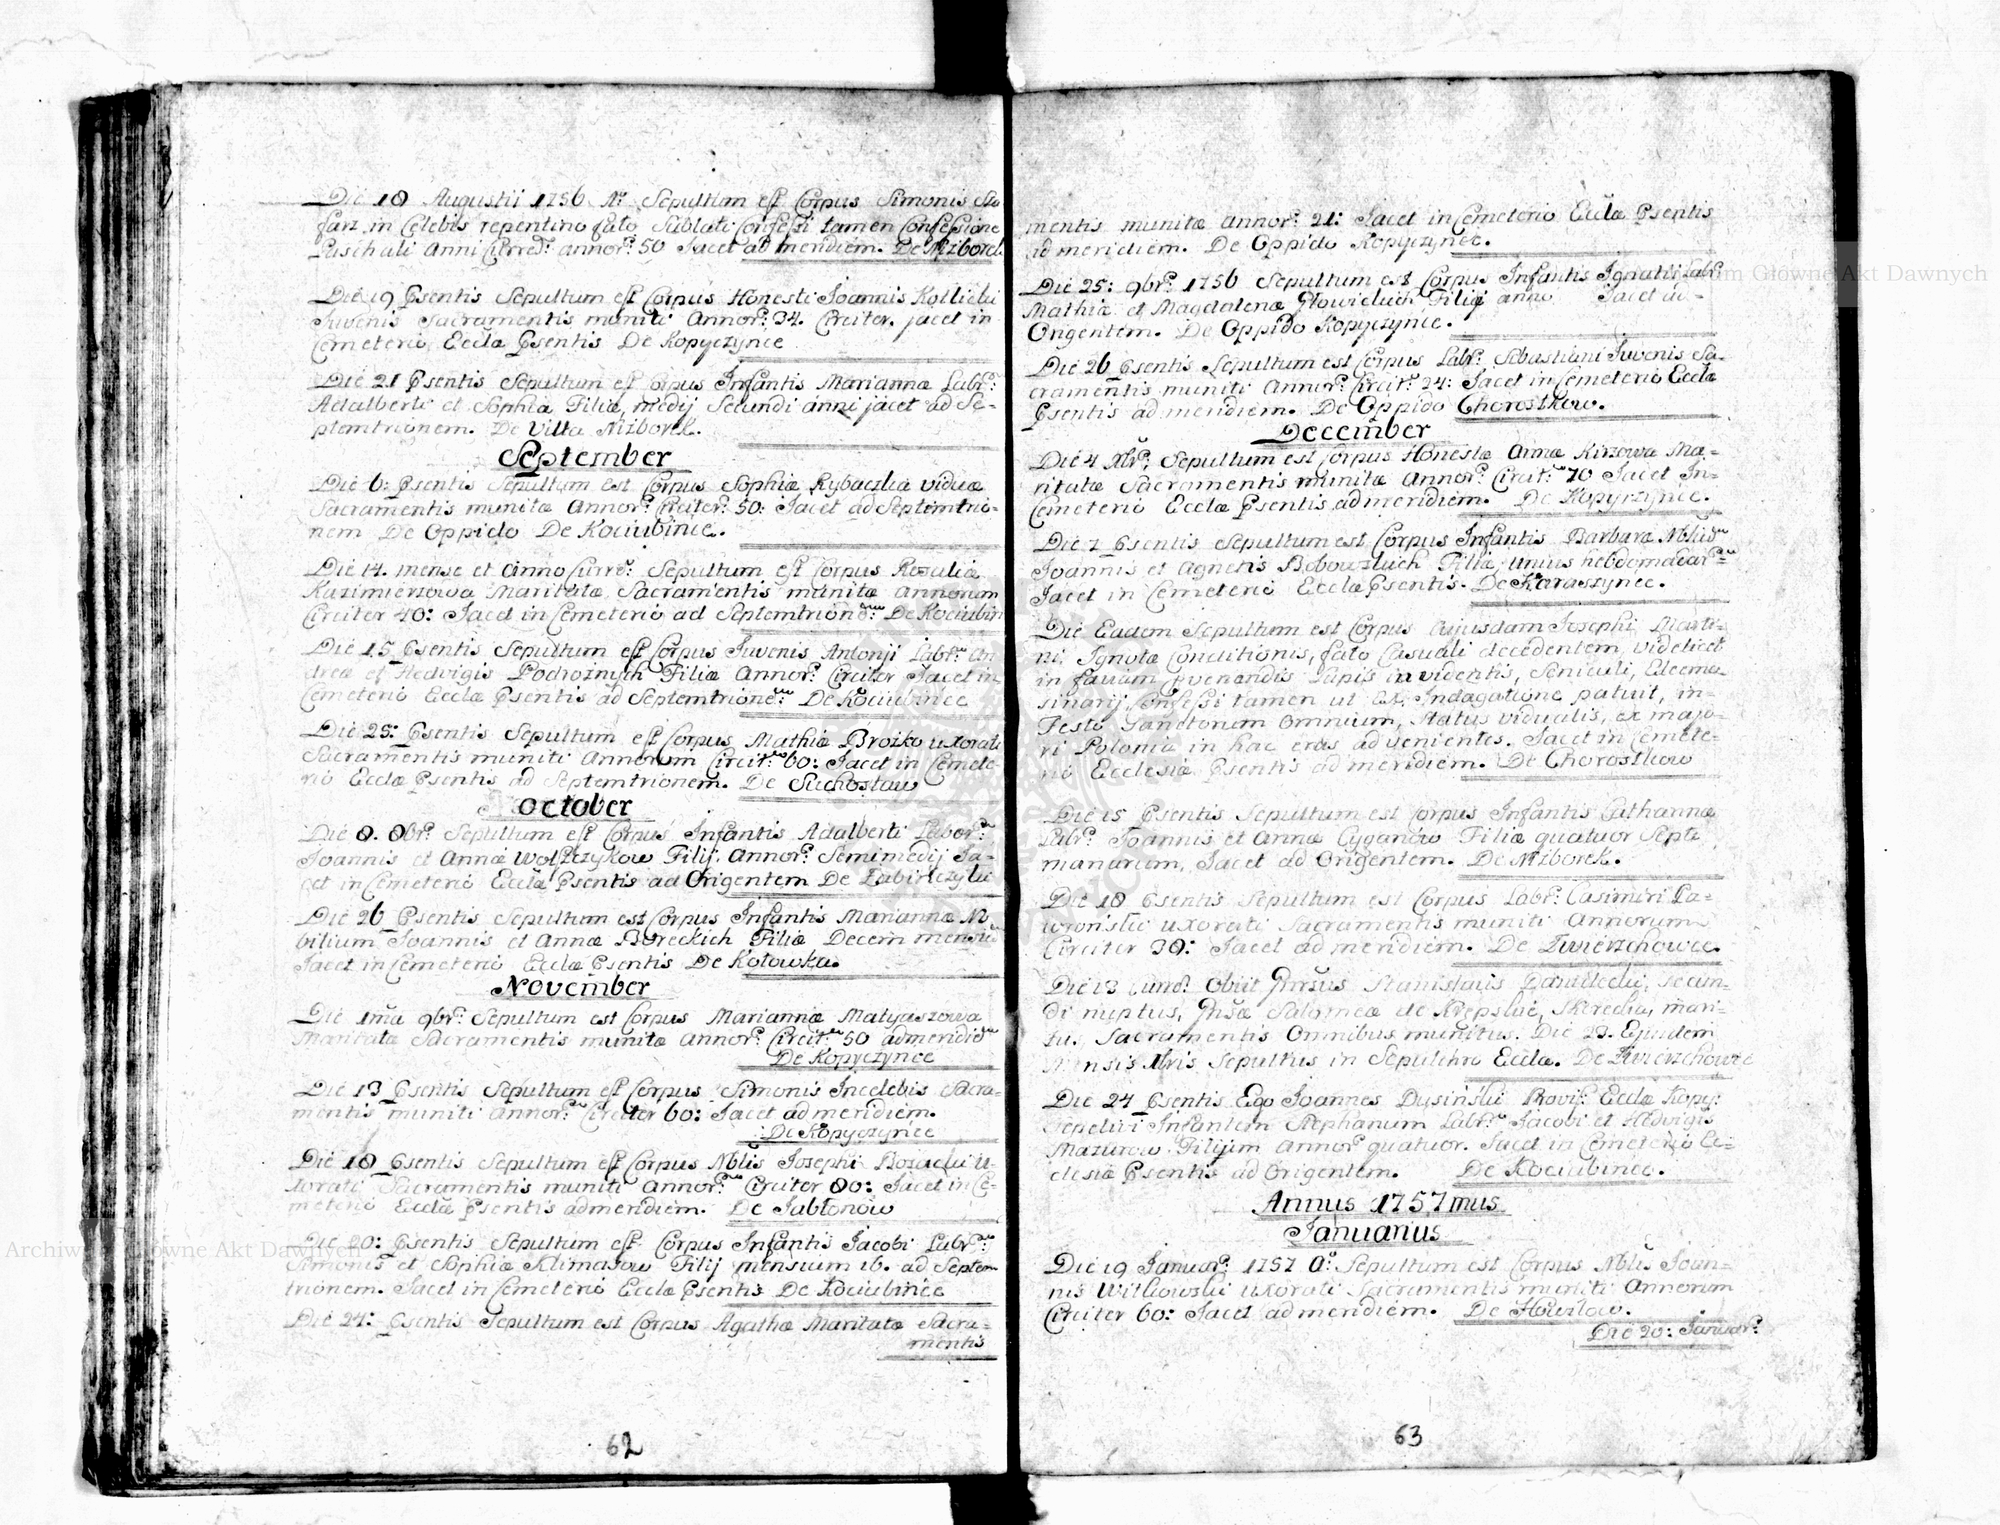 Die 18 Augusti 1756 Ao Sepultum est Corpus Simonis
farz in Celebis repentino fato Sublati Confessi tamen Confessione
Paschali Anni Curren: annor: 50 Jacet ad meridiem. De Nizborek
Die 19 Psentis Sepultum est Corpus Honesti Joannis Kotlicki
Juvenis Sacramentis muniti Annor: 34. Circiter. jacet in
Cemeterio Eccla Psentis De Kopyczynce
Die 21 Psentis Sepultum est Corpus Infantis Mariannæ Labr:
Adalberti et Sophiæ Filiæ, medij Secundi anni jacet ad Se-
ptemtrionem. De Villa Nizborek.
September
Die 6: Psentis Sepultum est Corpus Sophiæ Rybaczka viduæ
Sacramentis munitæ Annor: Circiter: 50: Jacet ad Septemtrio-
nem De Oppido De Kociubince.
Die 14. mense et Anno Curre: Sepultum est Corpus Rozaliæ
Kazimierzowa Maritatæ Sacramentis munitæ annorum
Circiter 40: Jacet in Cemeterio ad Septemtrione: De Kociubin
Die 15 Psentis Sepultum est Corpus Juvenis Antonji Labr: An
dreæ et Hedvigis Podroznych Filiæ Annor: Circiter Jacet in
Cemeterio Eccla Psentis ad Septemtrione: De Kociubince
Die 25: Psentis Sepultum est Corpus Mathiæ Brozko uxorati
Sacramentis muniti Annorum Circit: 60: Jacet in Cemete-
rio Eccla Psentis ad Septemtrionem. De Suchostaw
October
Die 8. 8br: Sepultum est Corpus Infantis Adalberti Labor:
Joannis et Annæ Filij. Annor: Semimedij Ja-
cet in Cemeterio Eccla Psentis ad Origentem De
Die 26 Psentis Sepultum est Corpus Infantis Mariannæ No
bilium Joannis et Annæ Boreckich Filiæ Decem mensiu
Jacet in Cemeterio Eccla Psentis De Kotowka.
November
Die 1ma 9br: Sepultum est Corpus Mariannæ Matyaszowa
Maritatæ Sacramentis munitæ Annor: Circit: 50 ad meridie
De Kopyczynce
Die 13 Psentis Sepultum est Corpus Simonis Incelebis Sacra-
mentis muniti annor: Circiter 60: Jacet ad meridiem.
De Kopyczynce
Die 18 Psentis Sepultum est Corpus Nblis Josephi u-
xorati Sacramentis muniti Annor: Circiter 80: Jacet in Ce-
meterio Eccla Psentis ad meridiem. De Jabłonow
Die 20: Psentis Sepultum est Corpus Infantis Jacobi Labr:
Simonis et Sophiæ Klimasow Filij mensium 16. ad Septem
trionem. Jacet in Cemeterio Eccla Psentis De Kociubince
Die 24: Psentis Sepultum est Corpus Agathæ Maritatæ Sacra-
mentis
62
mentis munitæ annor: 21: Jacet in Cemeterio Eccla Psentis
ad meridiem. De Oppido Kopyczynce.
Die 25: 9br: 1756 Sepultum est Corpus Infantis Ignatii Labr:
Mathiæ et Magdalenæ Głowickich Filij anno Jacet ad-
Origentem. De Oppido Kopyczynce.
Die 26 Psentis Sepultum est Corpus Labr: Sebastiani Juvenis Sa-
cramentis muniti Annor: Circit: 24: Jacet in Cemeterio Eccla
Psentis ad meridiem. De Oppido Chorostkow.
December
Die 4 Xbr; Sepultum est Corpus Honestæ Annæ Kirzowa Ma-
ritatæ Sacramentis munitæ Annor: Circit: 70 Jacet In-
Cemeterio Eccla Psentis ad meridiem. De Kopyczynce.
Die 7 Psentis Sepultum est Corpus Infantis Barbaræ Nbliu
Joannis et Agnetis Filiæ unius hebdomadar:
Jacet in Cemeterio Eccla Psentis. De Karaszynce.
Die Eadem Sepultum est Corpus Cujusdam Josephi Marti-
ni, Ignotæ Conditionis, fato Casuali decedentem, videlicet
in favium Lupis invidentis, Seniculi, Eleemo-
sinarij, Confessi tamen ut ex Indagatione patuit, in-
Festo Sanctorum Omnium, Status vidualis, ex majo-
ri Polonia in has oras advenientes. Jacet in Cemete-
rio Ecclesiæ Psentis ad meridiem. De Chorostkow
Die 15 Psentis Sepultum est Corpus Infantis Catharinæ
Labr: Joannis et Annæ Cyganow Filiæ quatuor Septi
manarum, Jacet ad Origentem. De Nizborek.
Die 18 Psentis Sepultum est Corpus Labr: Casimiri La-
wronski uxorati Sacramentis muniti Annorum
Circiter 30: Jacet ad meridiem. De Zwierzchowce.
Die 23 Obiit Stanislaus Daniłecki, secun-
di nuptus, Salomeæ de Krepskie, Skrecka, mari-
tu. Sacramentis Omnibus munitus. Die 23. Ejusdem
Mensis Xbris Sepultus in Sepulchro Eccla. De Zwierzchowce
Die 24 Psentis Ego Joannes Dysiński Eccla Kopy:
Sepelivi Infantem Stephanum Labr: Jacobi et Hedvigis
Mazurow Filijum Annor quatuor. Jacet in Cemeterio Ec-
clesiæ Psentis ad Origentem. De Kociubince.
Annus 1757mus
Januarius
Die 19 Januar: 1757 Ao: Sepultum est Corpus Nblis Joan-
nis Witkowski uxorati Sacramentis muniti Annorum
Circiter 60: Jacet ad meridiem. De Howiłow.
Die 20: Januar:
63
Archiwum Główne Akt Dawnych
Archiwum Główne Akt Dawnych